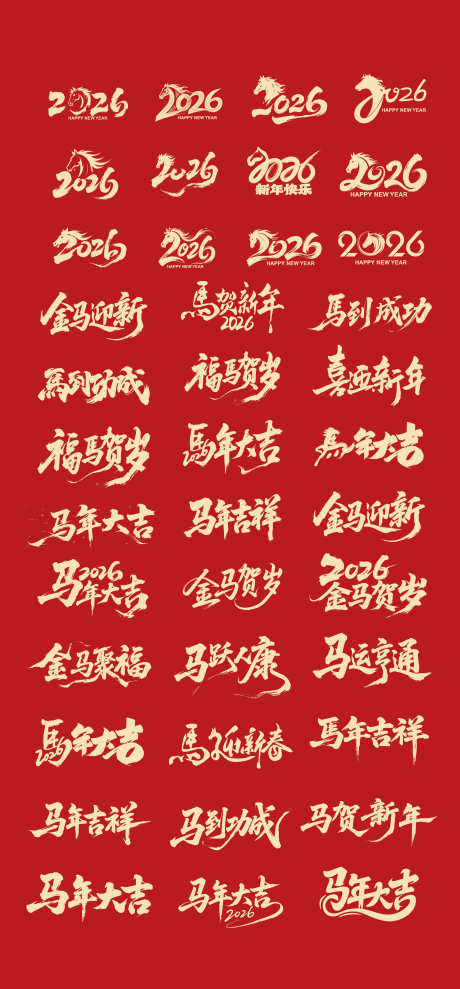 2026 2026 2026 2026
HAPPY NEW YEAR HAPPY NEW YEAR HAPPY NEW YEAR
2026 2026 2026 2026
新年快乐 HAPPY NEW YEAR
2026 2026 2026 2026
HAPPY NEW YEAR HAPPY NEW YEAR HAPPY NEW YEAR
金马迎新 馬贺新年 2026 馬到成功
馬到功成 福馬贺岁 喜迎新年
福馬贺岁 馬年大吉 馬年大吉
马年大吉 马年吉祥 金马迎新
马年大吉 2026 金马贺岁 2026 金马贺岁
金马聚福 马跃人康 马运亨通
馬年大吉 2026 馬迎新春 馬年吉祥
马年吉祥 马到功成 马贺新年
马年大吉 马年大吉 2026 马年大吉